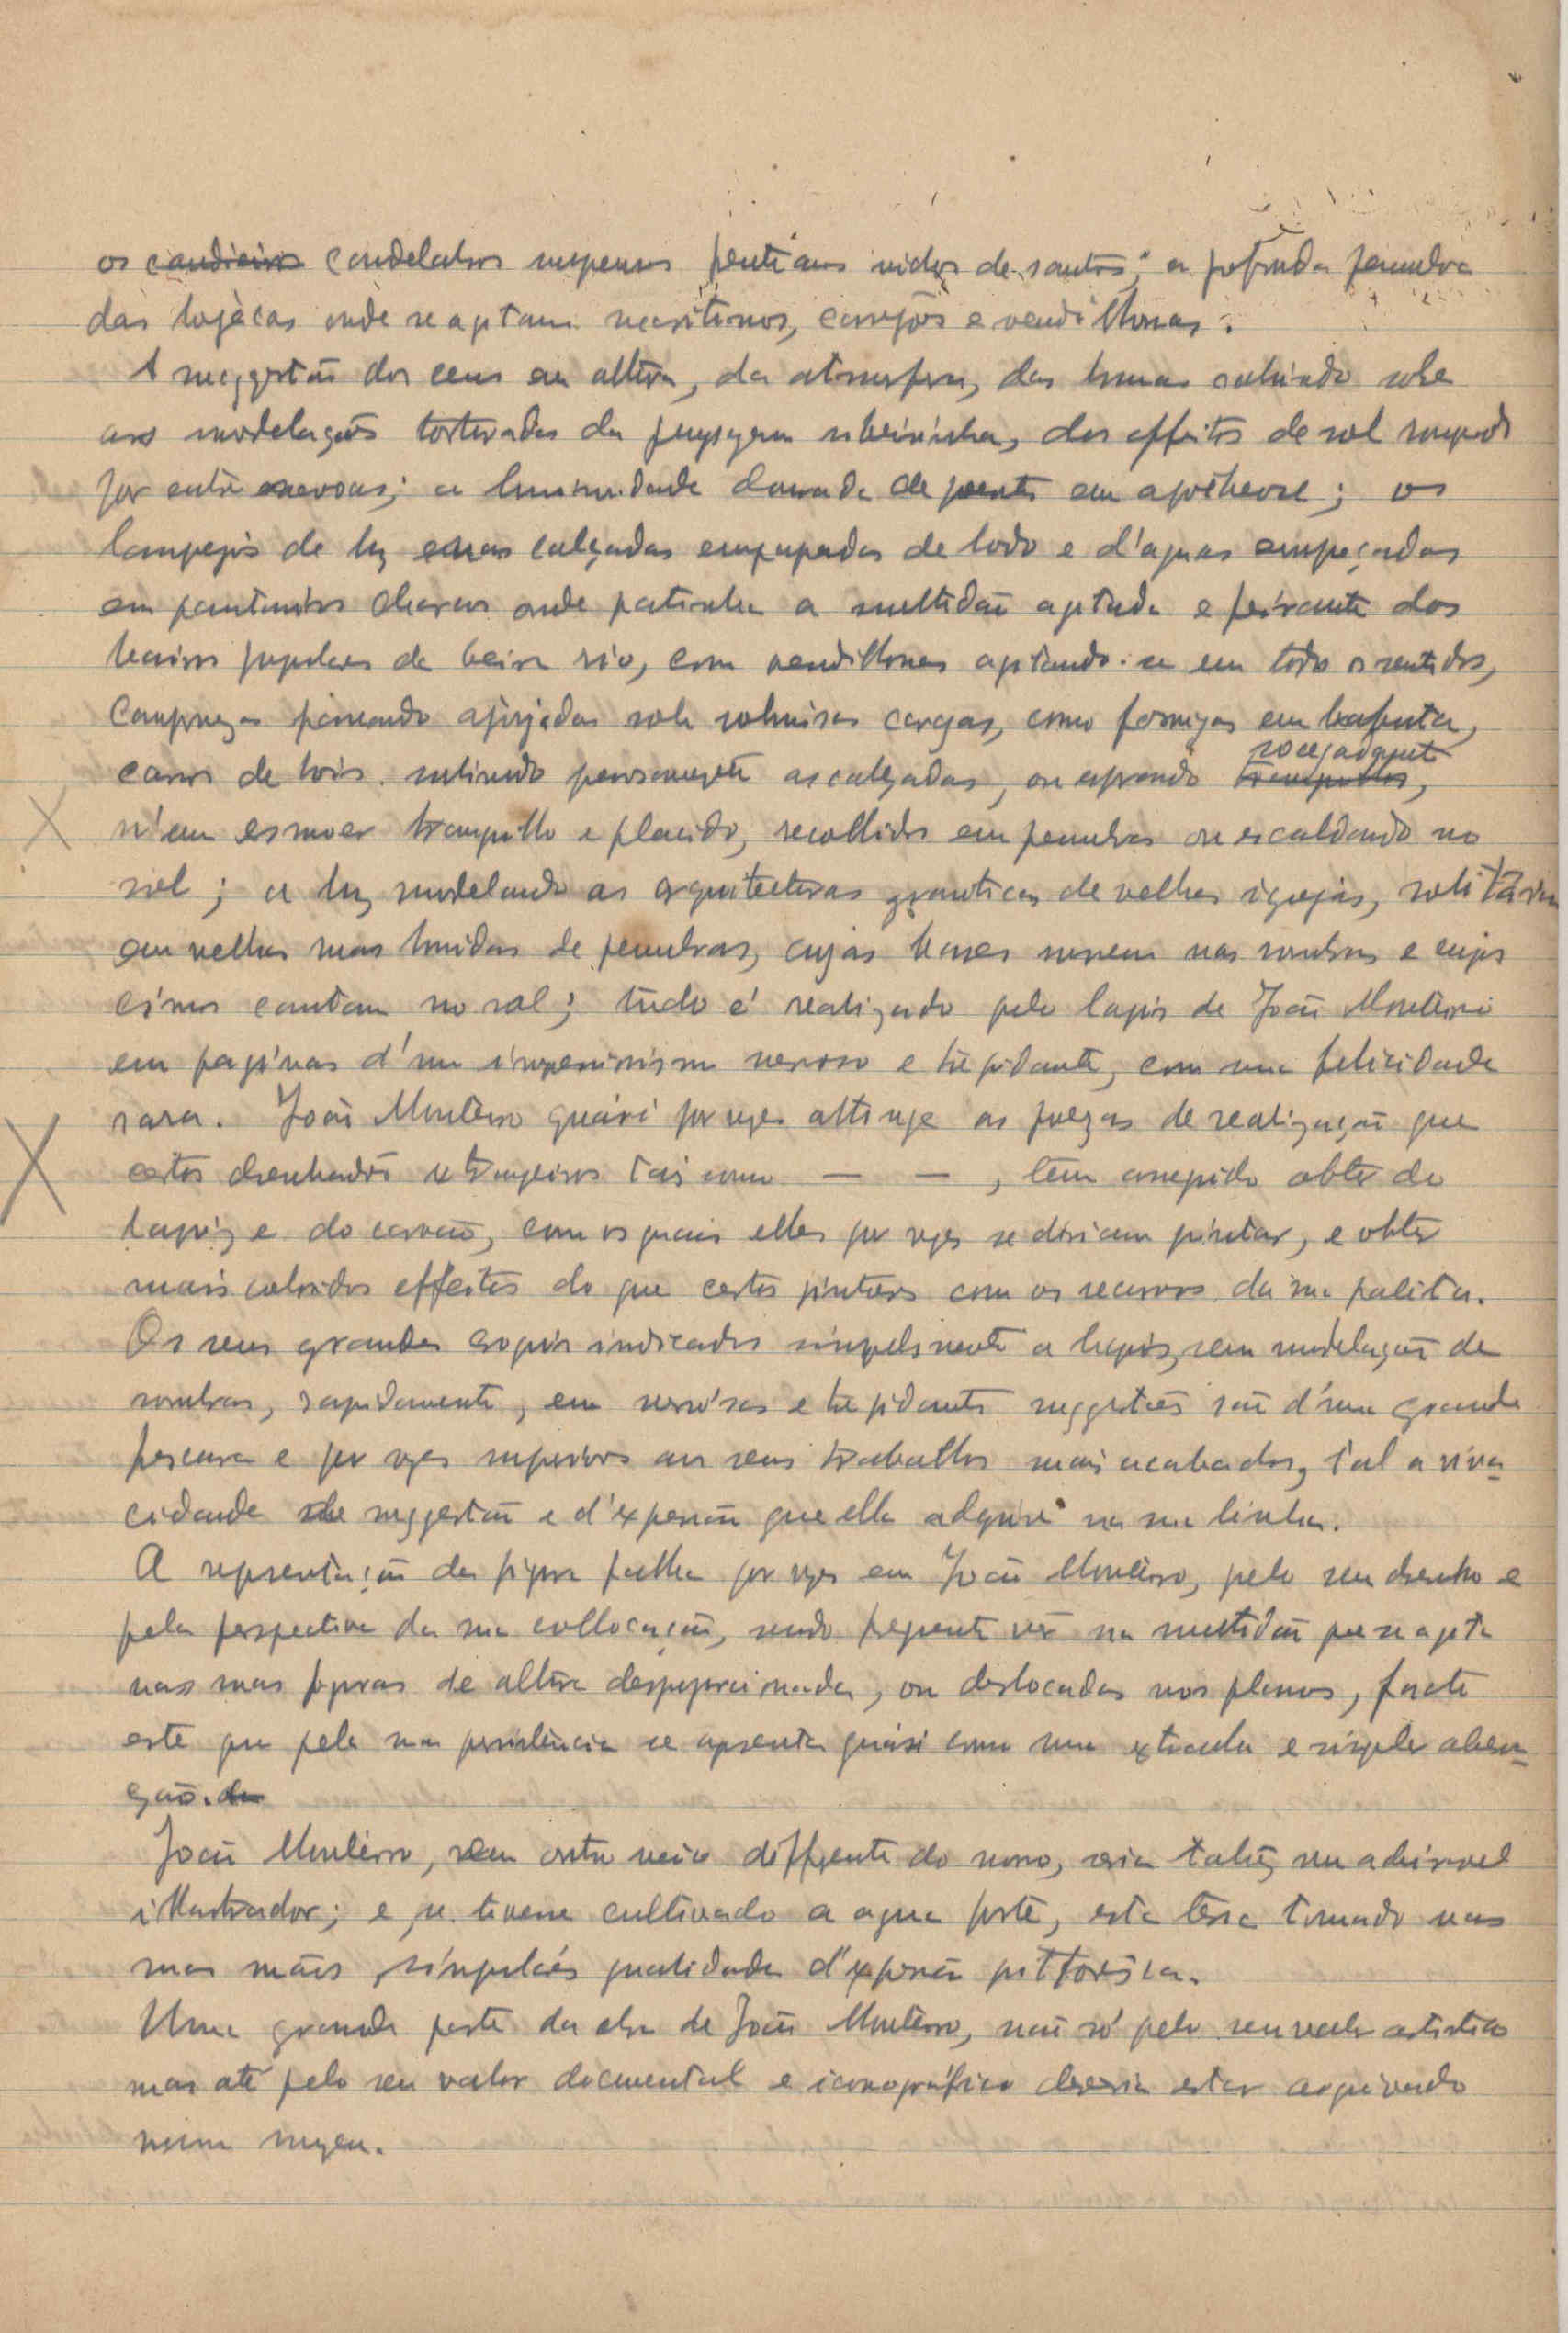 os candieiros candelabros suspensos de santos; a profunda penumbra
das lojécas onde se agitam maritimos, carrejões e vendilhonas.
A suggestão dos ceus em altura, da atmosfera, das brumas cahindo sobre
as modelações torturadas da paysagem ribeirinha, dos effeitos de sol rompendo
por entre nevoas; a luminosidade dourada de poentes em apotheose; os
lampejos de luz nas calçadas empapadas de lodo e d'aguas empoçadas
em charcos onde patinha a multidão agitada e feirante dos
bairros populares da beira rio, com vendilhonas agitando-se em todos os sentidos,
passando ajoujadas sob volumosas cargas, como formigas em labuta,
carros de bois subindo penosamente as calçadas, ou esperando socegadamente
n'um esmoer tranquillo e placido, recolhidos em penumbras ou escaldando no
sol; a luz modelando as arquitecturas graniticas de velhas igrejas, solitarias
em velhas ruas humidas de penumbras, cujas bases morrem nas sombras e cujos
cimos cantam no sol; tudo é realizado pelo lapis de João Monteiro
em paginas d'um impressionismo nervoso e trepidante, com uma felicidade
rara. João Monteiro quási por vezes attinge as forças de realização que
certos desenhadores estrangeiros tais como — —, têm conseguido obter do
lapis e do carvão, com os quais elles por vezes se diriam pintar, e obter
mais coloridos effeitos do que certos pintores com os recursos da sua paleta.
Os seus grandes croquis indicados simplesmente a lapis, sem modelação de
sombras, rapidamente, em nervosas e trepidantes suggestões são d'uma grande
frescura e por vezes superiores aos seus trabalhos mais acabados, tal a viva-
cidade de suggestão e d'expressão que elle adquire na sua linha.
A representação da figura falha por vezes em João Monteiro, pelo seu desenho e
pela perspectiva da sua collocação, sendo frequente vêr na multidão que se agita
nas ruas figuras de altura desproporcionada, ou deslocadas nos planos, facto
este que pela sua persistencia se apresenta quási como uma extranha e simples aberra-
ção. da
João Monteiro, n'um outro meio differente do nosso, seria talvez um admiravel
illustrador; e, se tivesse cultivado a agua forte, esta teria tomado nas
suas mãos singulares qualidades d'expressão pittoresca.
Uma grande parte da obra de João Monteiro, não só pelo seu valor artistico
mas até pelo seu valor documental e iconográfico deveria estar arquivada
num museu.